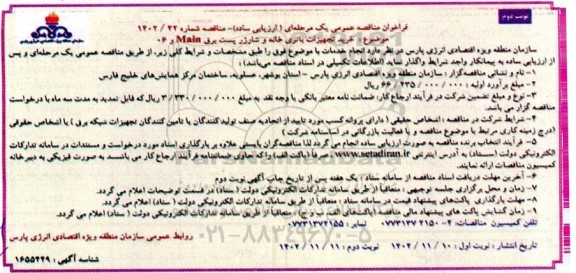 نوبت دوم
فراخوان مناقصه عمومی یک مرحله‌ای (ارزیابی ساده)– مناقصه شماره ۲۲/ ۱۴۰۲
موضوع: خرید تجهیزات باتری خانه و شارژر پست برق Main و ۰۶
سازمان منطقه ویژه اقتصادی انرژی پارس
سازمان منطقه ویژه اقتصادی انرژی پارس در نظر دارد انجام خدمات با موضوع فوق را طبق مشخصات و شرایط کلی زیر، از طریق مناقصه عمومی یک مرحله‌ای و پس
از ارزیابی ساده به پیمانکار واجد شرایط واگذار نماید. (اطلاعات تکمیلی در اسناد مناقصه می‌باشد):
۱- نام و نشانی مناقصه‌گزار: سازمان منطقه ویژه اقتصادی انرژی پارس – استان بوشهر، عسلویه، ساختمان مرکز همایش‌های خلیج فارس
۲- مبلغ برآورد اولیه: ۶۶/۴۳۵/۰۰۰/۰۰۰ ریال
۳- نوع و مبلغ تضمین شرکت در فرآیند ارجاع کار: ضمانت نامه معتبر بانکی یا وجه نقد به مبلغ ۳/۳۳۰/۰۰۰/۰۰۰ ریال که قابل تمدید به مدت سه ماه با درخواست
مناقصه گزار می باشد.
۴- شرایط شرکت در مناقصه: اشخاص حقیقی (دارای پروانه کسب مورد تایید از اتحادیه صنف تولید کنندگان یا تامین کنندگان تجهیزات شبکه برق) یا اشخاص حقوقی
(درج زمینه کاری مرتبط با موضوع مناقصه و یا فعالیت بازرگانی در اساسنامه شرکت)
۵- فرآیند انتخاب برنده مناقصه به صورت ارزیابی ساده انجام می گردد لذا مناقصه‌گران بایستی علاوه بر بارگذاری اسناد مورد درخواست و مستندات در سامانه تدارکات
الکترونیکی دولت (ستاد) به آدرس اینترنتی www.setadiran.ir، صرفاً (پاکت الف) و اصل ضمانتنامه فرآیند ارجاع کار می بایستی به صورت فیزیکی به دبیرخانه
کمیسیون مناقصات ارائه نمایند.
۶- آخرین مهلت دریافت اسناد مناقصه از سامانه ستاد: یک هفته پس از تاریخ چاپ آگهی نوبت دوم
۷- زمان و محل برگزاری جلسه توجیهی: متعاقباً از طریق سامانه تدارکات الکترونیکی دولت (ستاد) در قسمت توضیحات اعلام می گردد.
۸- مهلت بارگذاری پاکت‌های پیشنهاد قیمت در سامانه ستاد: متعاقباً از طریق سامانه تدارکات الکترونیکی دولت (ستاد) اعلام می گردد.
۹- زمان گشایش پاکت های پیشنهاد مالی مناقصه (پاکت‌های الف، ب و ج): متعاقباً از طریق سامانه تدارکات الکترونیکی دولت (ستاد) اعلام می گردد.
تلفن کمیسیون مناقصات: ۴- ۰۷۷۳۱۳۷۲۱۵۰ نمابر: ۰۷۷۳۱۳۷۲۱۵۵
تاریخ انتشار: نوبت اول: ۱۴۰۲/۱۱/۱۰ نوبت دوم: ۱۴۰۲/۱۱/۱۱
روابط عمومی سازمان منطقه ویژه اقتصادی انرژی پارس
شناسه آگهی: ۱۶۵۵۴۴۹
۰۲۱-۸۸۳۴۹۶۷۰-۵